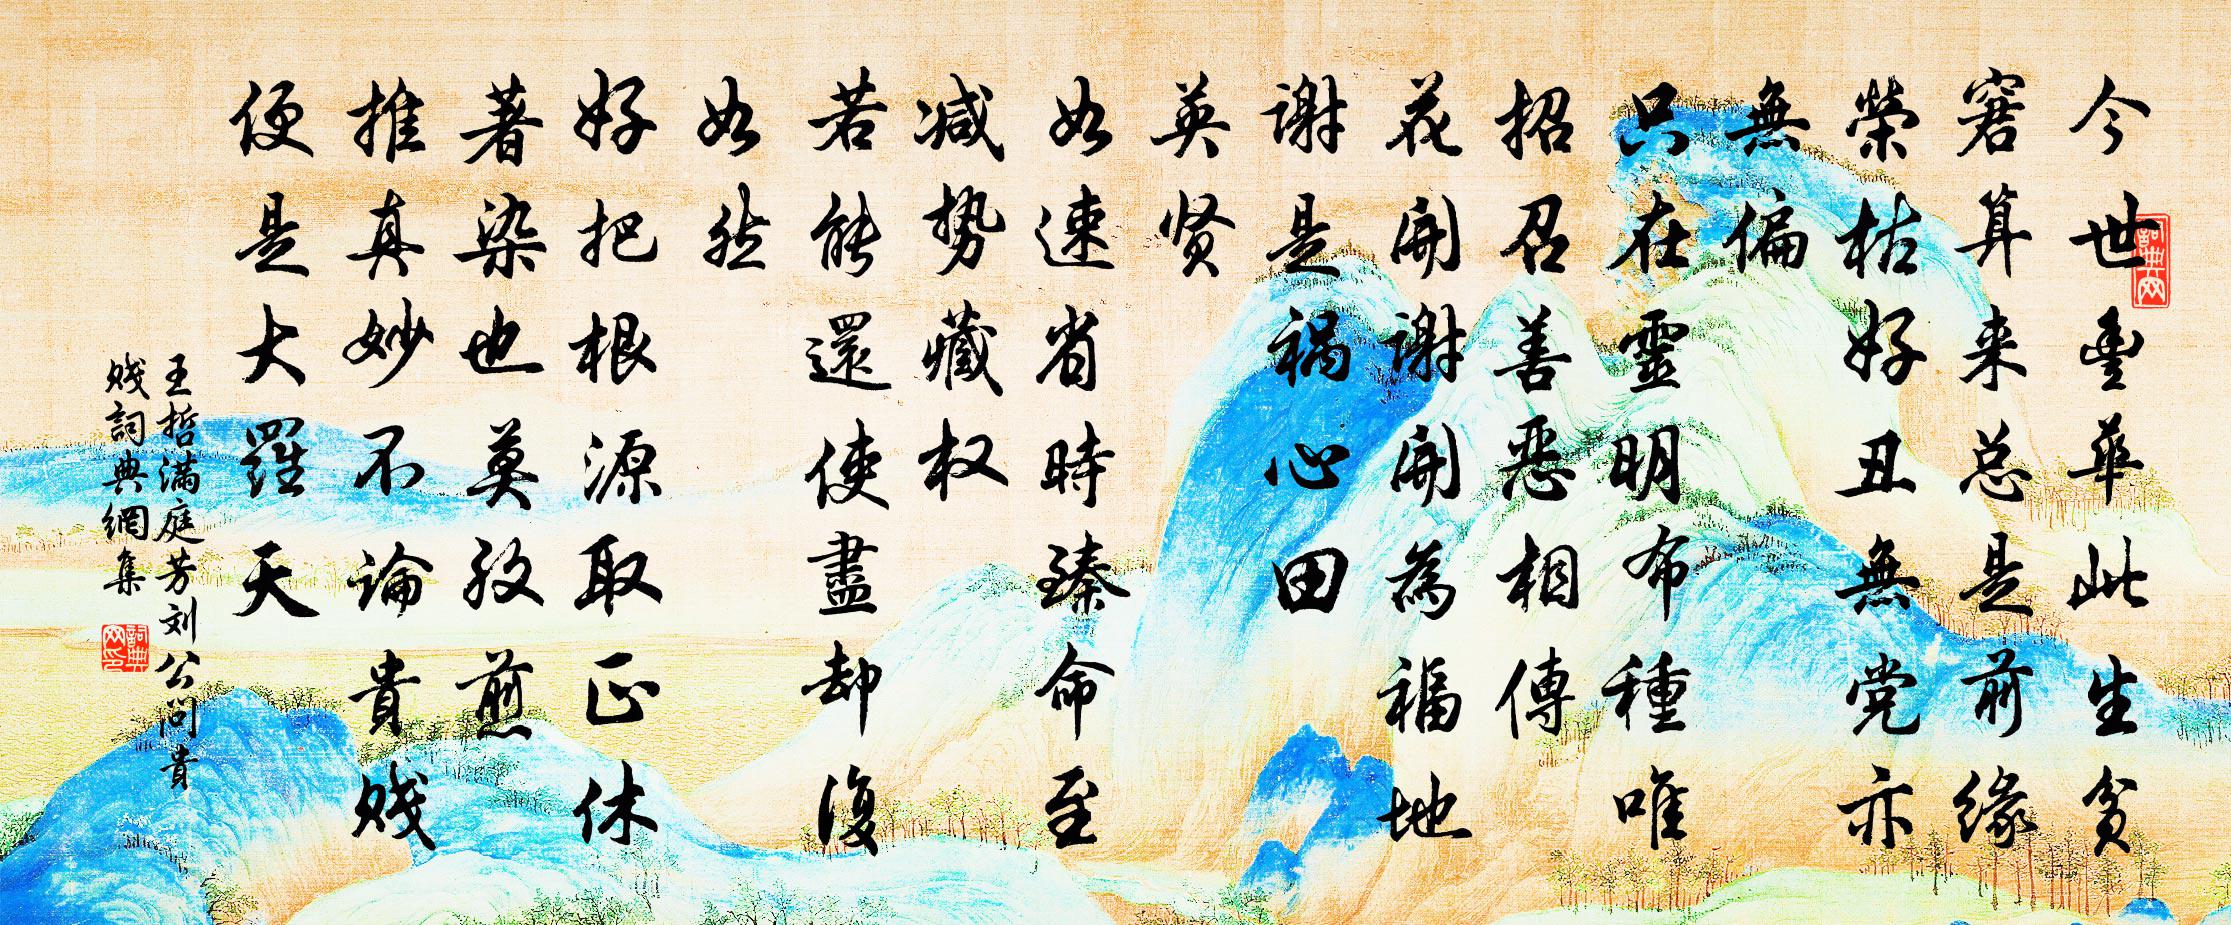 今世丰華此生贫
窘算来总是前缘
榮枯好丑無党亦
無偏
只在靈明布種唯
招召善恶相傳
花開謝開為福地
謝是祸心田
英贤
如速省時臻命至
减势藏权
若能還使盡却復
如然
好把根源取正休
著染也莫孜煎
推真妙不論貴贱
便是大羅天
王哲满庭芳刘公问貴
贱詞典網集
詞典網
詞典网印